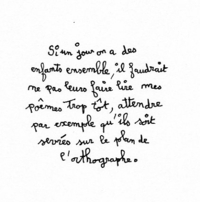 Si un jour on a des
enfants ensemble, il faudrait
ne pas leurs faire lire mes
poèmes trop tôt, attendre
par exemple qu'ils soit
sevrés sur le plan de
l'orthographe.